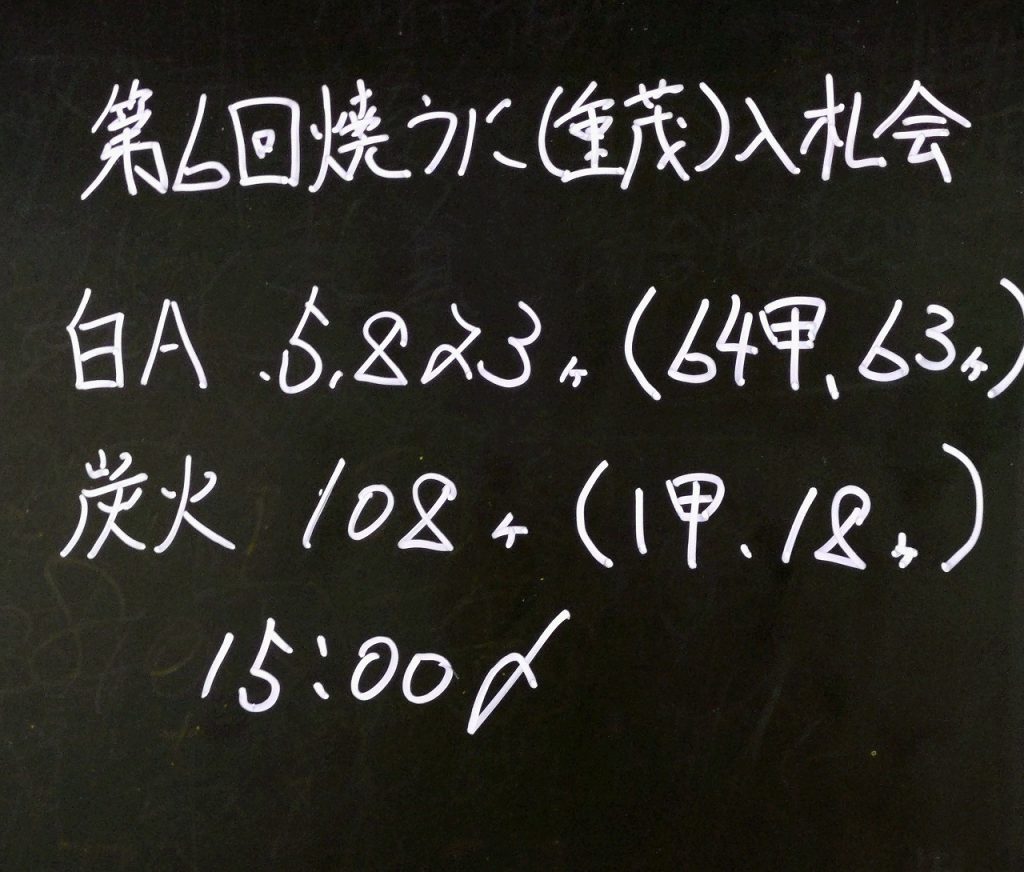 第6回焼うに(重茂)入札会
白A 5,823ヶ(64甲、63ヶ)
炭火 108ヶ(1甲、18ヶ)
15:00〆